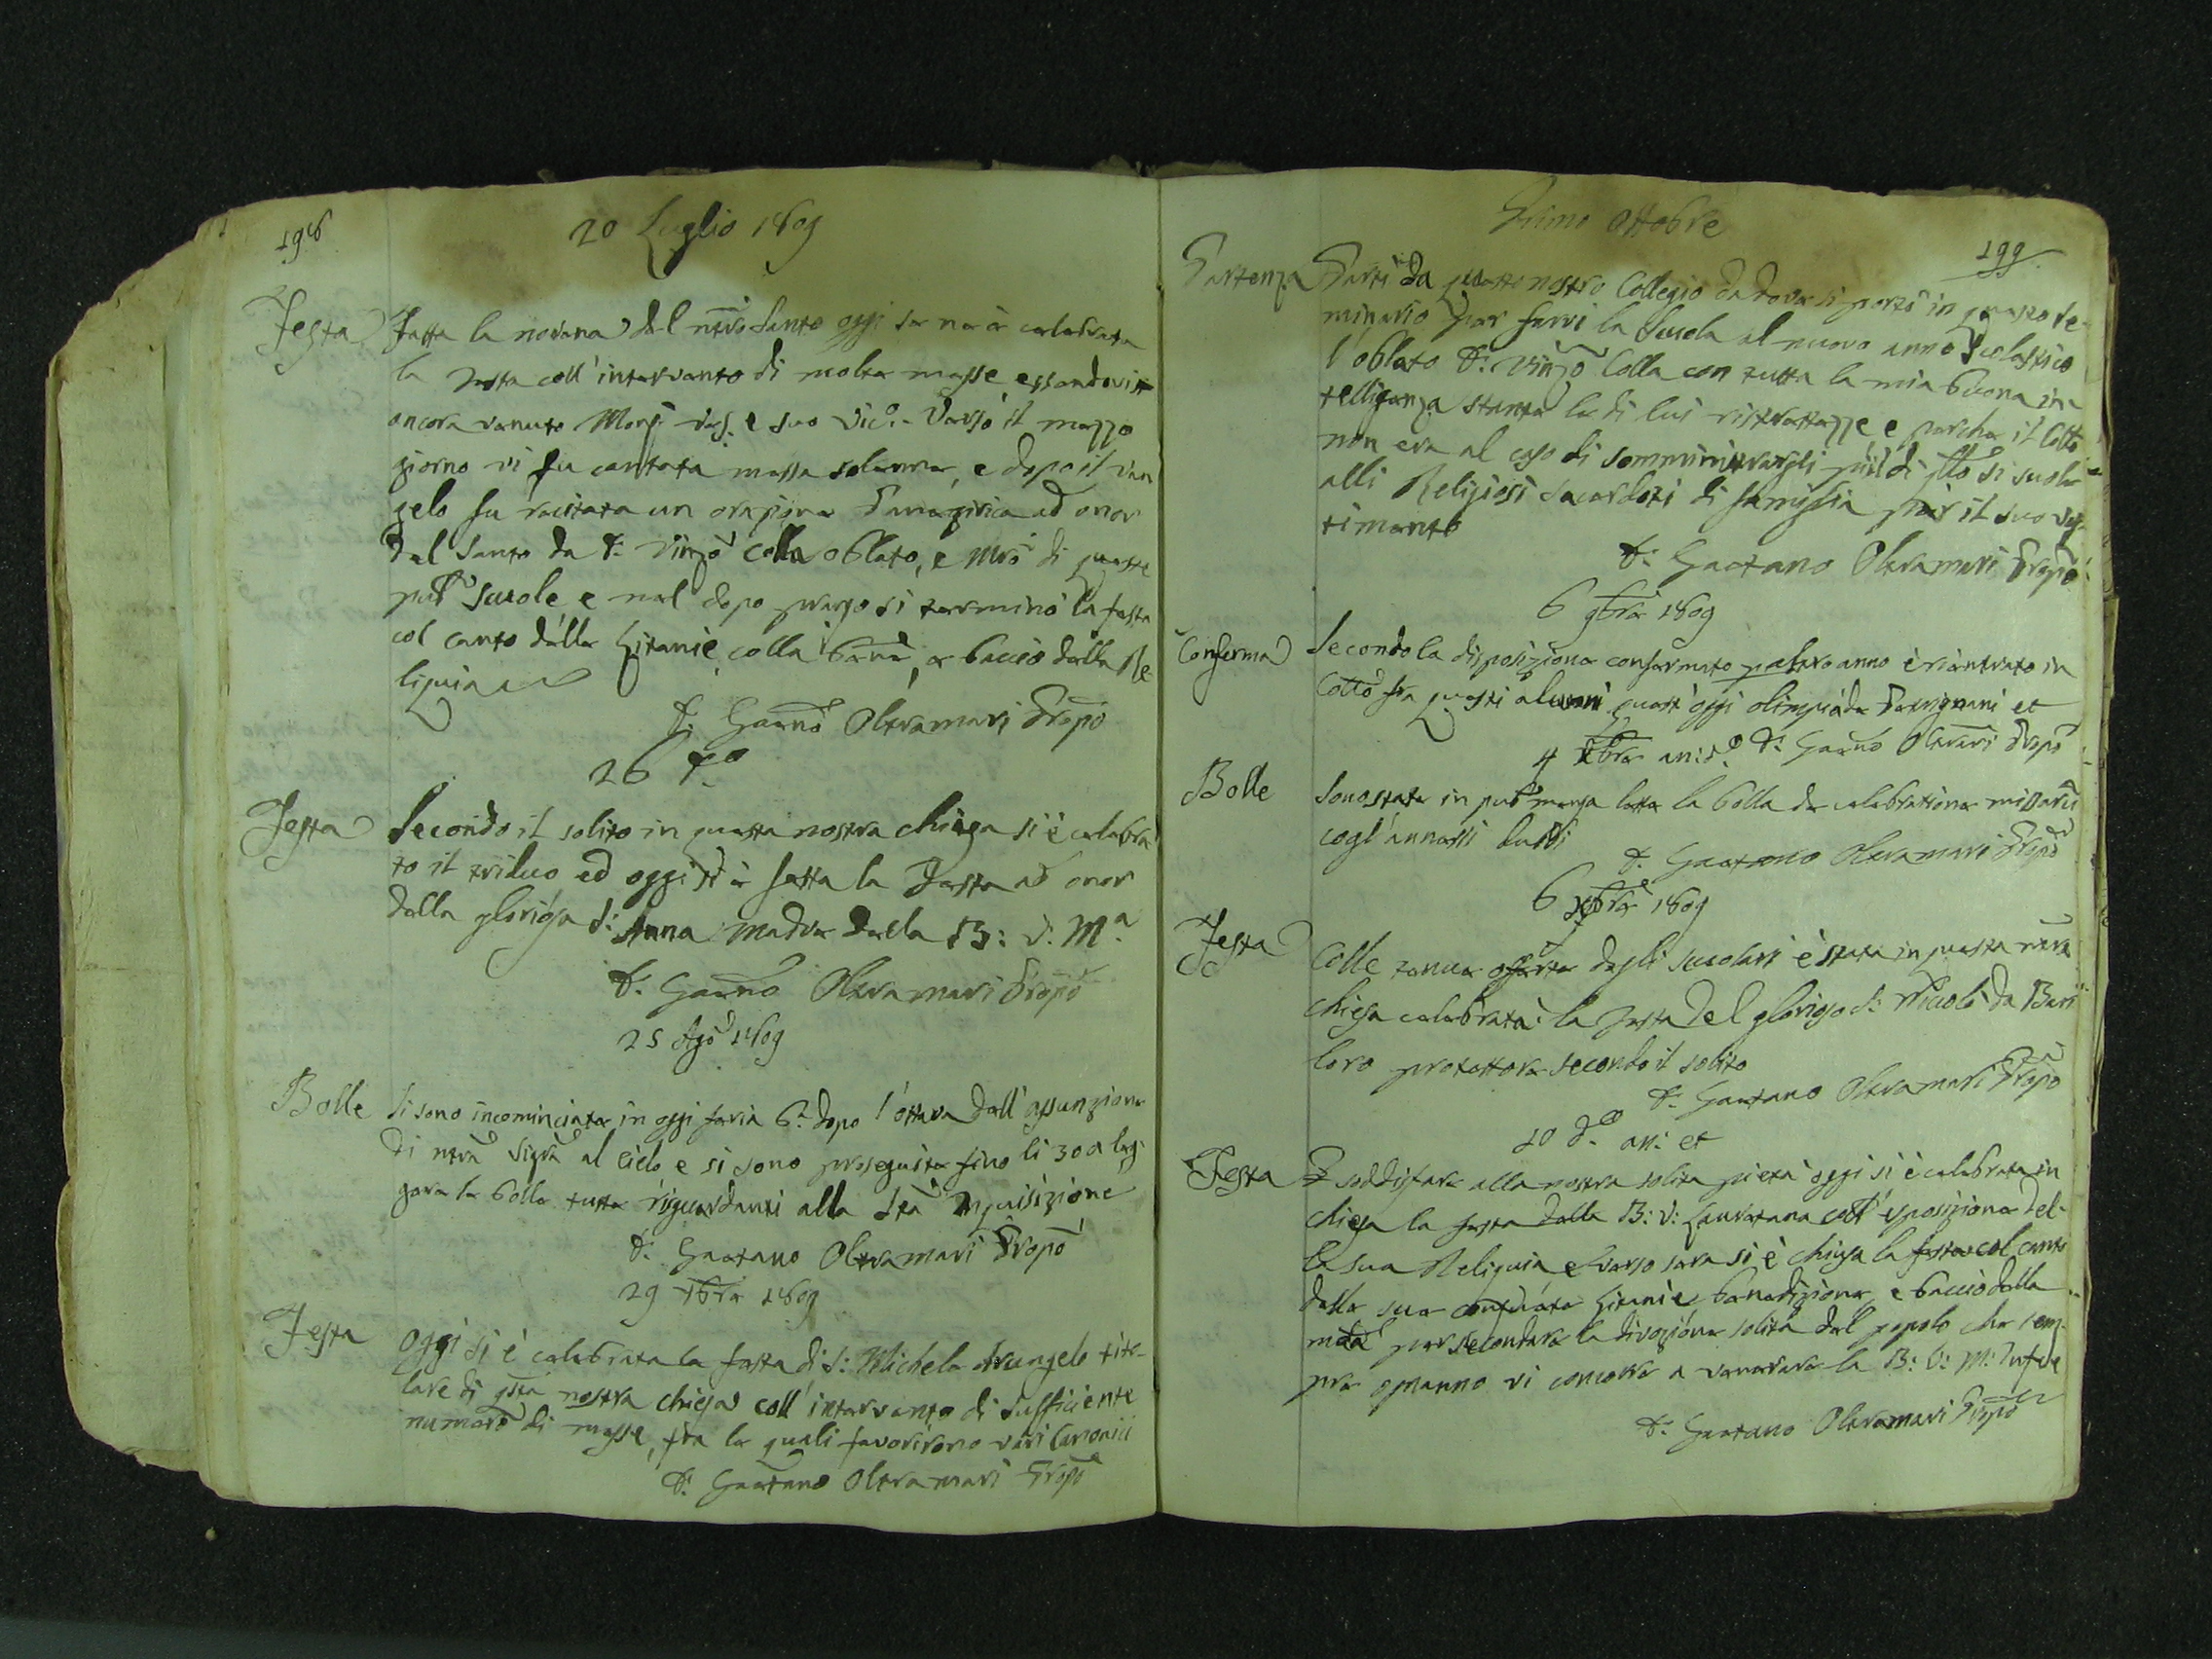 198
20 Luglio 1809
Festa
Fatta la novena del ntro Santo oggi se ne è celebrata
la Festa coll'intervento di molte messe essendovi
ancora venuto Monsr. Vesc. e suo Vico. Verso il mezzo
giorno vi fu cantata messa solenne, e dopo il Van
gelo fu recitata un orazione Panegirica ad onor
del Santo da D. Vinzo Colla oblato, e Mro di queste
pube Scuole, e nel dopo pranzo si terminò la festa
col canto delle Litanie, colla bene, e baccio della Re-
liquia
D. Gaeno Oltramari Propo
26 do
Festa
Secondo il solito in questa nostra chiesa si è celebra
to il triduo ed oggi si è fatta la Festa ad onor
della gloriosa S: Anna madre della B: V: Ma
D. Gaeno Oltramari Propo
25 Ago 1809
Bolle
Si sono incominciate in oggi feria 6a dopo l'ottava dell'assunzione
di ntra Sigra al Cielo e si sono proseguite fino li 30 a leg-
gere le bolle tutte risguardanti alla Sta Inquisizione
D. Gaetano Oltramari Propo
29 7bre 1809
Festa
Oggi si è celebrata la festa di S: Michele Arcangelo tito-
lare di qsta nostra chiesa coll'intervento di sufficiente
numero di messe, fra le quali favorirono vari Canonici
D. Gaetano Oltramari Propo
Primo Ottobre
199
Partenza
Partì da questo nostro Collegio da dove si portò in questo Se-
minario per farvi la Scuola al nuovo anno Scolastico
l'oblato D. Vinzo Colla con tutta la mia buona in-
telligenza stante le di lui ristrettezze, e perche il Colto
non era al caso di somministrargli più di qto si suole
alli Religiosi Sacerdoti di famiglia per il suo ves-
timento
D. Gaetano Oltramari Propo
6 9bre 1809
Conferma
Secondo la disposizione confermato p altro anno è rientrato in
Colto fra questi alunni quest'oggi Olimpiade et
D. Gaeno Oltrari Propo
4 Xbre an: do
Bolle
Sono state in pub mensa lette la bolla de celebratione missaru
cogl'annessi
D. Gaetano Oltramari Propo
6 Xbre 1809
Festa
Colle tenue offerte degli Scuolari è stata in questa ntra
chiesa celebrata la Festa del glorioso S: Niccolò da Bari
loro protettore secondo il solito
D. Gaetano Oltramari Propo
10 do an: et
Festa
P soddisfare alla nostra solita pietà oggi si è celebrata in
chiesa la festa della B: V: Lauretana coll'esposizione del-
la sua Reliquia e verso sera si è chiusa la festa col canto
delle sue Litanie, benedizione, e baccio della
mda per secondare la divozione solita del popolo che sem-
pre ognanno vi concorre a venerare la B: V: M:
D. Gaetano Oltramari Propo